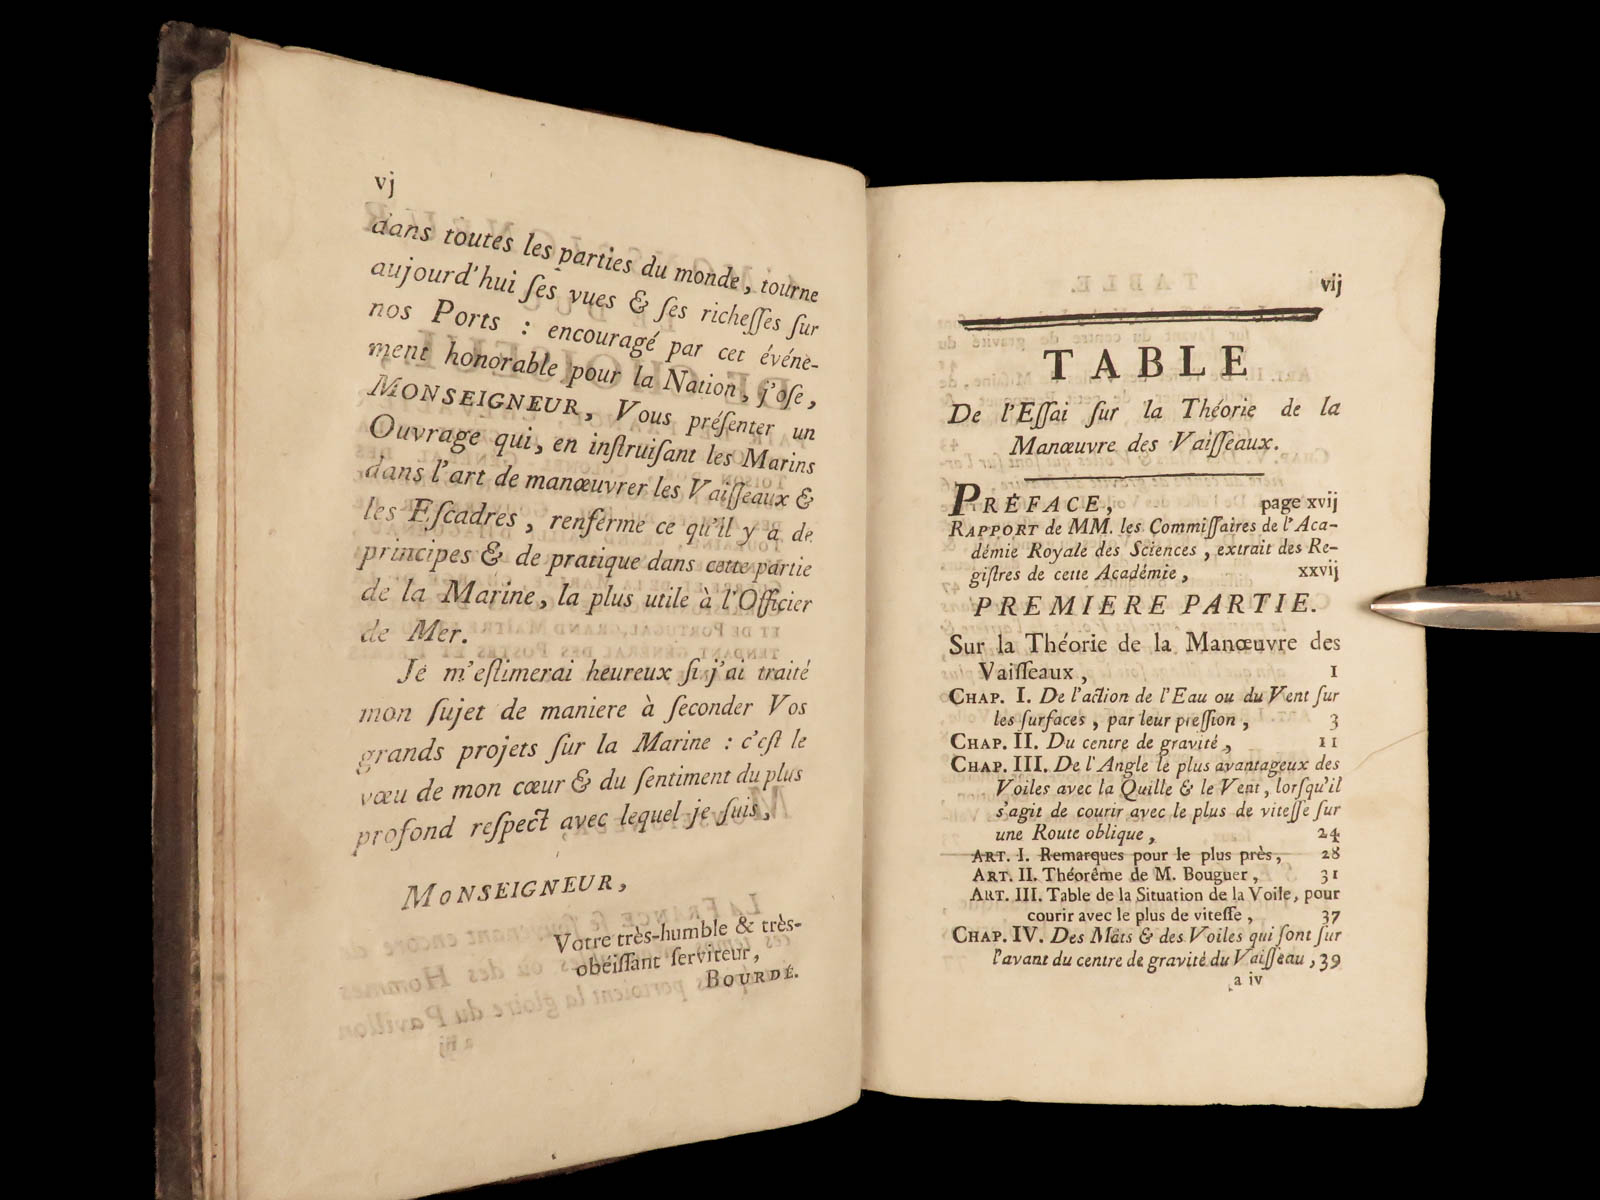 vj
dans toutes les parties du monde, tourne
aujourd'hui ſes vues & ſes richeſſes ſur
nos Ports : encouragé par cet événe-
ment honorable pour la Nation, j'oſe,
MONSEIGNEUR, Vous préſenter un
Ouvrage qui, en inſtruiſant les Marins
dans l'art de manœuvrer les Vaiſſeaux &
les Eſcadres, renferme ce qu'il y a de
principes & de pratique dans cette partie
de la Marine, la plus utile à l'Officier
de Mer.
Je m'eſtimerai heureux ſi j'ai traité
mon ſujet de maniere à ſeconder Vos
grands projets ſur la Marine : c'eſt le
vœu de mon cœur & du ſentiment du plus
profond reſpect avec lequel je ſuis,
MONSEIGNEUR,
Votre très-humble & très-
obéiſſant ſerviteur,
BOURDÉ.
vij
TABLE
De l'Eſſai ſur la Théorie de la
Manœuvre des Vaiſſeaux.
PRÉFACE, page xvij
RAPPORT de MM. les Commiſſaires de l'Aca-
démie Royale des Sciences, extrait des Re-
giſtres de cette Académie, xxvij
PREMIERE PARTIE.
Sur la Théorie de la Manœuvre des
Vaiſſeaux, 1
CHAP. I. De l'action de l'Eau ou du Vent ſur
les ſurfaces, par leur preſſion, 3
CHAP. II. Du centre de gravité, 11
CHAP. III. De l'Angle le plus avantageux des
Voiles avec la Quille & le Vent, lorſqu'il
s'agit de courir avec le plus de viteſſe ſur
une Route oblique, 24
ART. I. Remarques pour le plus près, 28
ART. II. Théorême de M. Bouguer, 31
ART. III. Table de la Situation de la Voile, pour
courir avec le plus de viteſſe, 37
CHAP. IV. Des Mâts & des Voiles qui ſont ſur
l'avant du centre de gravité du Vaiſſeau, 39
a iv